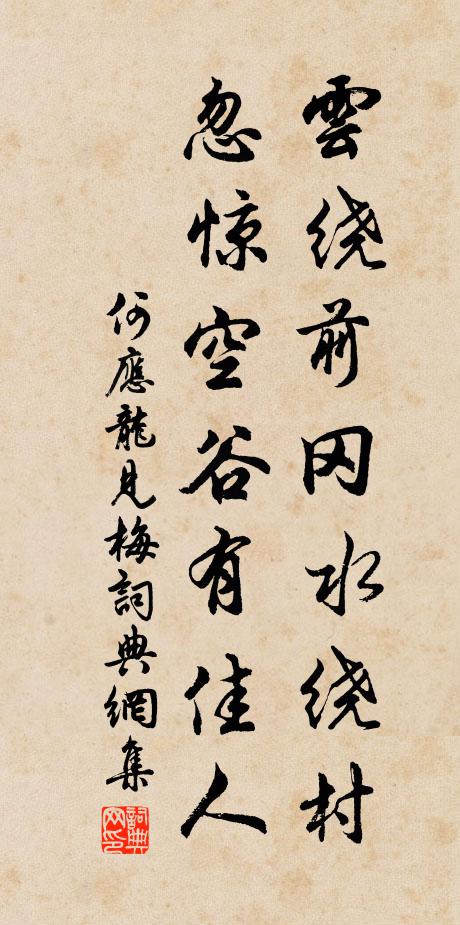 雲绕前冈水绕村
忽惊空谷有佳人
何應龍見梅詞典網集
詞典
网印